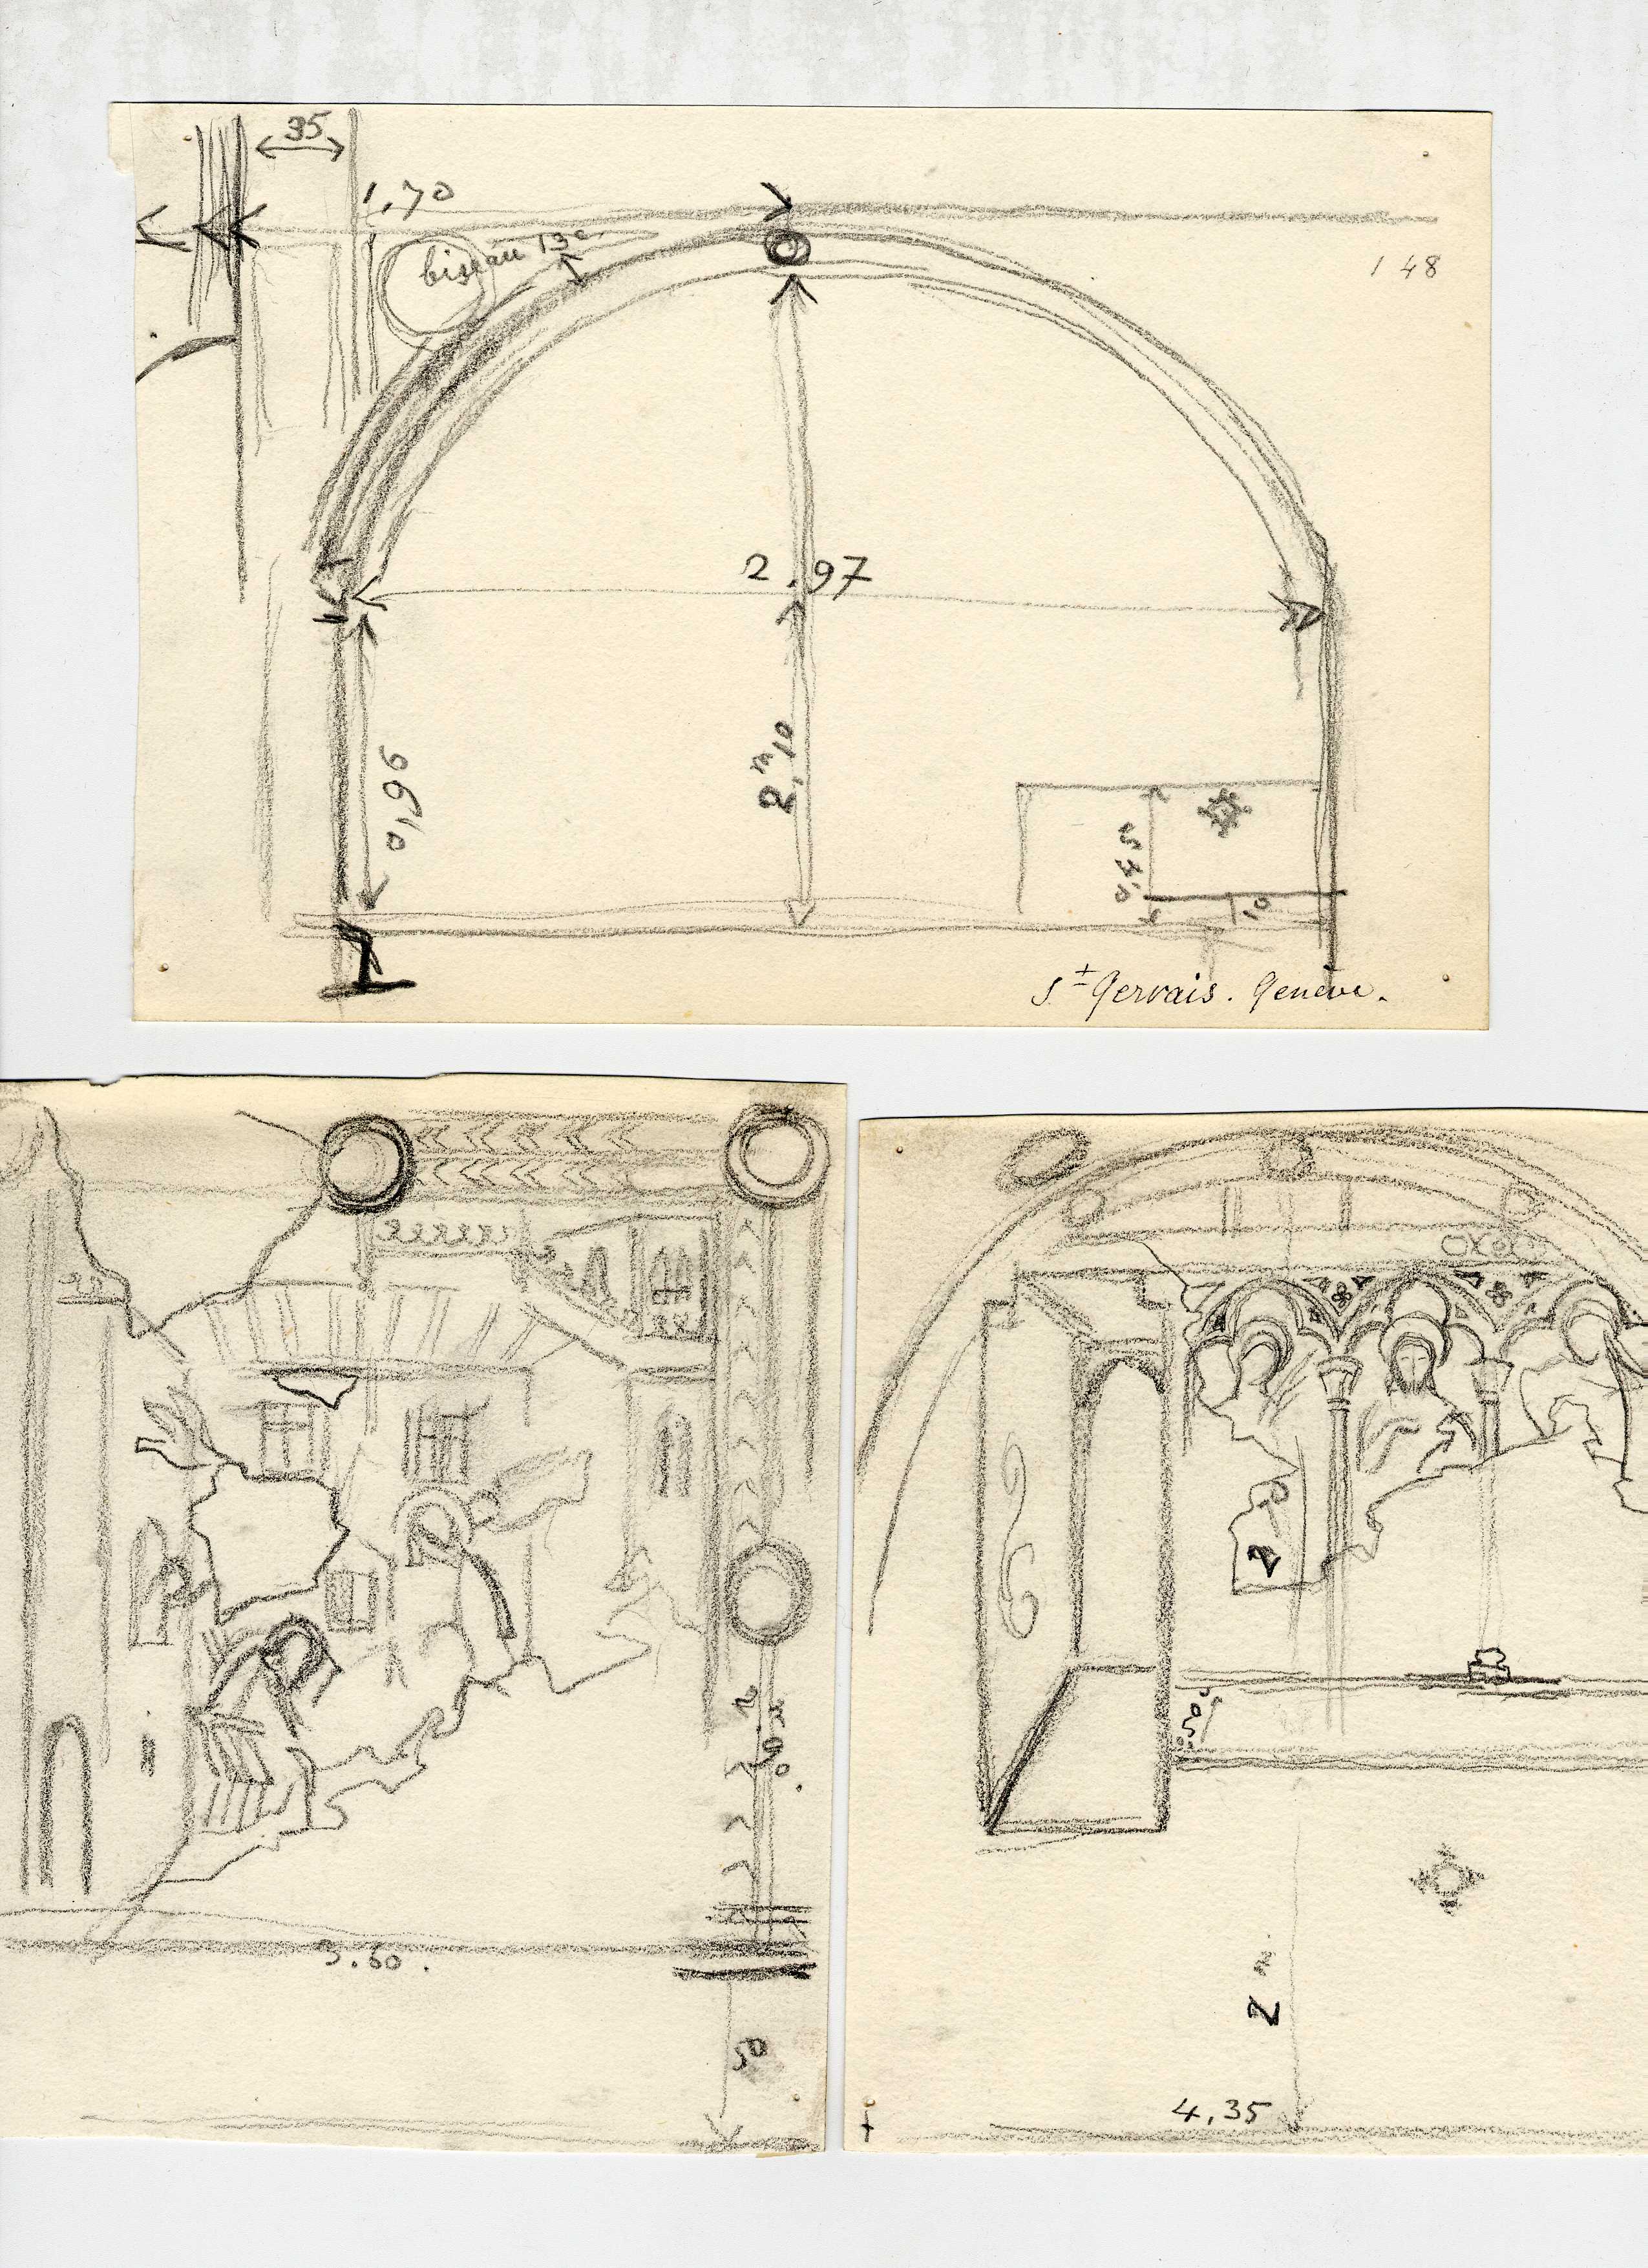 35
1,70
biseau 13c.
148
2.97
2,m10
0,96
0,45
10
St Gervais. Genève.
3.60.
50
0,50
2m.
4,35